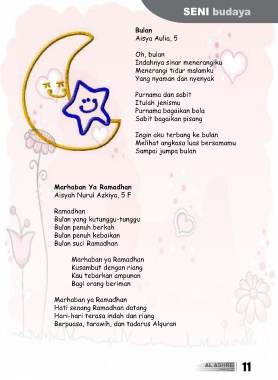 SENI budaya
Bulan
Aisya Aulia, 5
Oh, bulan
Indahnya sinar menerangiku
Menerangi tidur malamku
Yang nyaman dan nyenyak
Purnama dan sabit
Itulah jenismu
Purnama bagaikan bola
Sabit bagaikan pisang
Ingin aku terbang ke bulan
Melihat angkasa luas bersamamu
Sampai jumpa bulan
Marhaban Ya Ramadhan
Aisyah Nurul Azkiya, 5 F
Ramadhan
Bulan yang kutunggu-tunggu
Bulan penuh berkah
Bulan penuh kebaikan
Bulan suci Ramadhan
Marhaban ya Ramadhan
Kusambut dengan riang
Kau tebarkan ampunan
Bagi orang beriman
Marhaban ya Ramadhan
Hati senang Ramadhan datang
Hari-hari terasa indah dan riang
Berpuasa, tarawih, dan tadarus Alquran
11